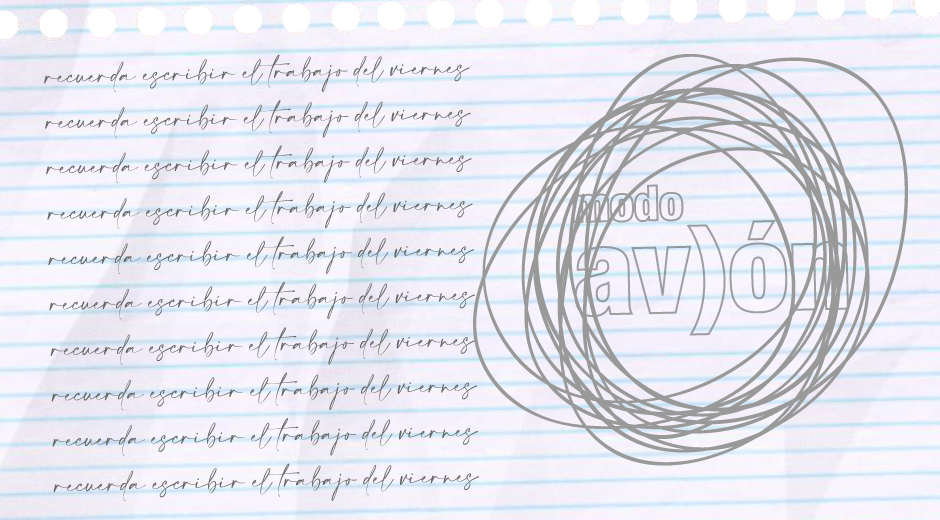 recuerda escribir el trabajo del viernes
recuerda escribir el trabajo del viernes
recuerda escribir el trabajo del viernes
recuerda escribir el trabajo del viernes
recuerda escribir el trabajo del viernes
recuerda escribir el trabajo del viernes
recuerda escribir el trabajo del viernes
recuerda escribir el trabajo del viernes
recuerda escribir el trabajo del viernes
recuerda escribir el trabajo del viernes
modo
av)ón